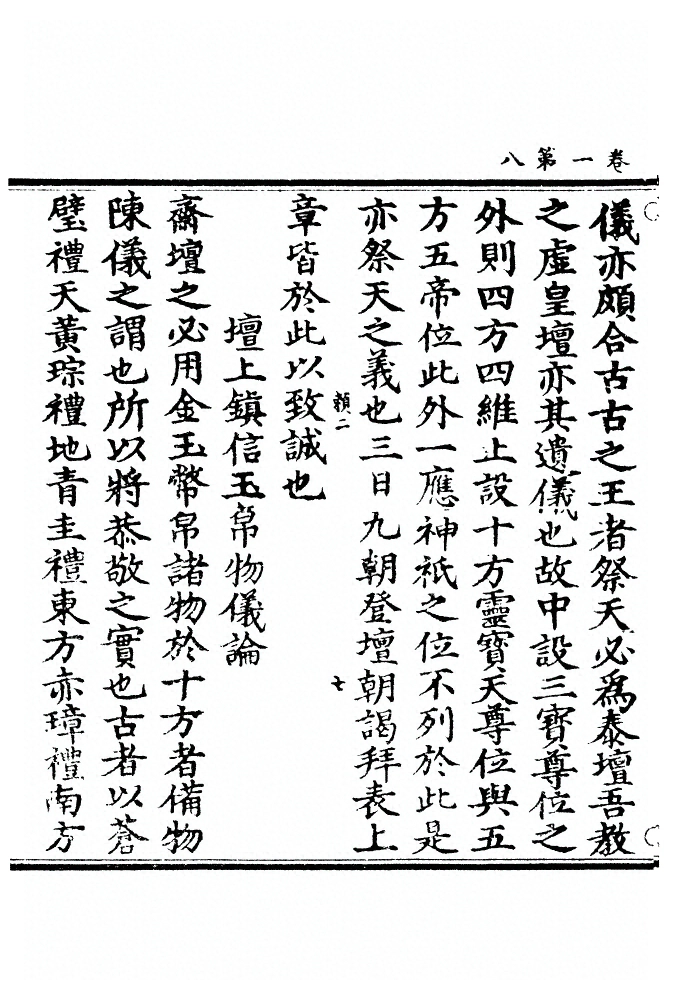 卷一第八
儀亦頗合古古之王者祭天必爲泰壇吾教
之虛皇壇亦其遺儀也故中設三寶尊位之
外則四方四維上設十方靈寶天尊位與五
方五帝位此外一應神祇之位不列於此是
亦祭天之義也三日九朝登壇朝謁拜表上
七
章皆於此以致誠也
壇上鎮信玉帛物儀論
齋壇之必用金玉幣帛諸物於十方者備物
陳儀之謂也所以將恭敬之實也古者以蒼
璧禮天黃琮禮地青圭禮東方赤璋禮南方